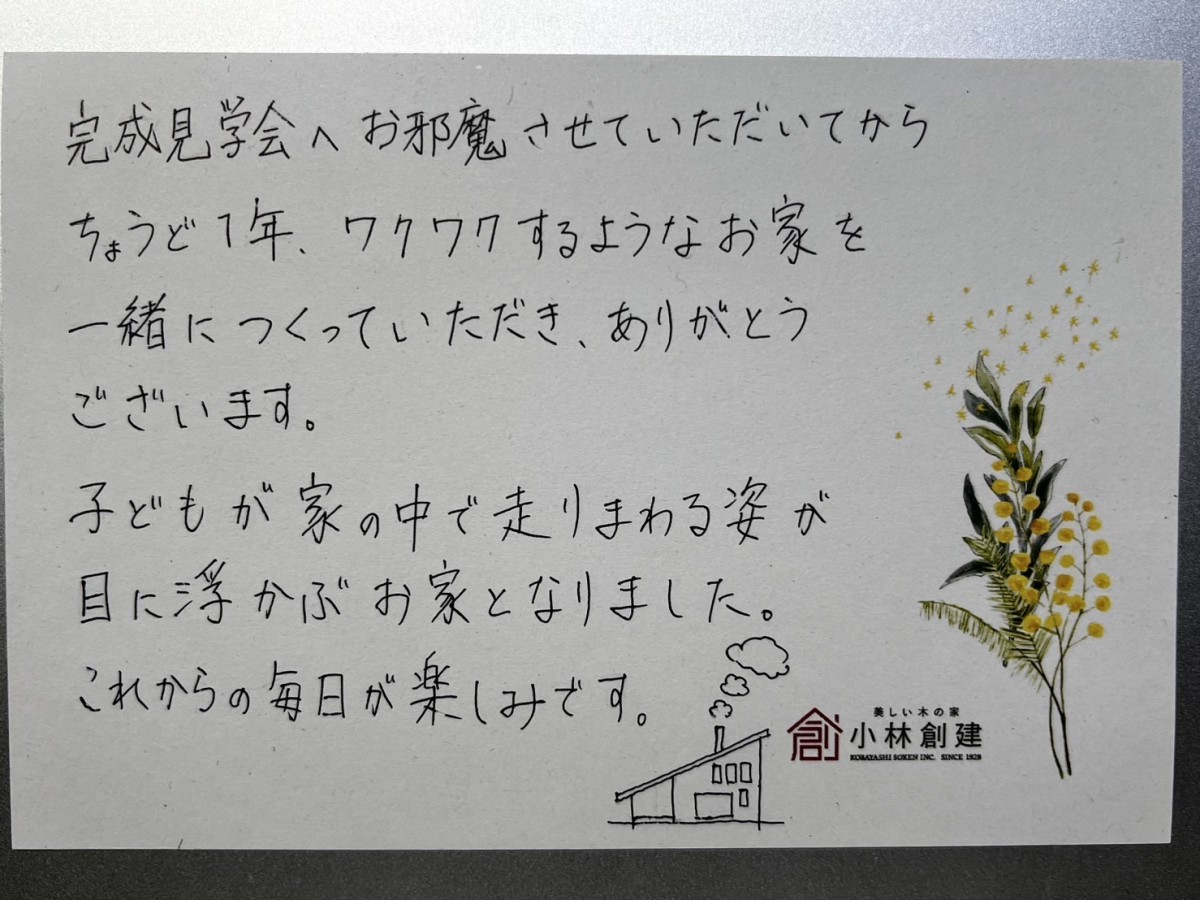 完成見学会へお邪魔させていただいてから
ちょうど1年、ワクワクするようなお家を
一緒につくっていただき、ありがとう
ございます。
子どもが家の中で走りまわる姿が
目に浮かぶお家となりました。
これからの毎日が楽しみです。
創
美しい木の家
小林創建
KOBAYASHI SOKEN INC. SINCE 1928